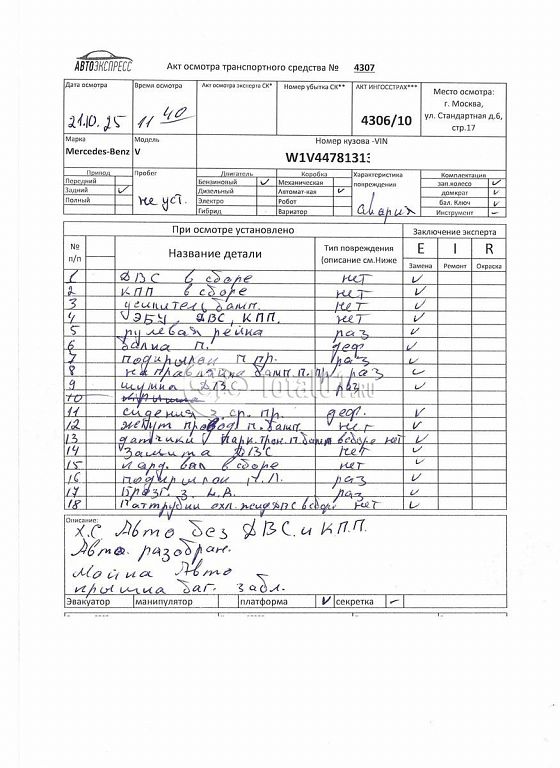 АВТОЭКСПРЕСС
Акт осмотра транспортного средства № 4307
Дата осмотра Время осмотра Акт осмотра эксперта СК* Номер убытка СК** АКТ ИНГОССТРАХ*** Место осмотра:
г. Москва,
ул. Стандартная д.6,
стр.17
21.10.25 11 40 4306/10
Марка Модель Номер кузова -VIN
Mercedes-Benz V W1V44781313
Привод Пробег Двигатель Коробка Характеристика повреждения Комплектация
Передний Бензиновый ✓ Механическая зап.колесо ✓
Задний ✓ Дизельный Автомат-кая ✓ домкрат ✓
Полный Электро Робот бал. Ключ ✓
Гибрид Вариатор Инструмент –
не уст. авария
При осмотре установлено Заключение эксперта
№ п/п Название детали Тип повреждения (описание см.Ниже E I R
Замена Ремонт Окраска
1 ДВС в сборе нет ✓
2 КПП в сборе нет ✓
3 усилитель бамп. нет ✓
4 ЭБУ ДВС, КПП. нет ✓
5 рулевая рейка раз ✓
6 балка п. деф ✓
7 подкрылок п пр. раз ✓
8 направляйка бамп п.п раз ✓
9 шумка ДВС раз ✓
10 крышка
11 сидения з. ср. пр. деф. ✓
12 жгут провод п. бамп. нет ✓
13 датчики парк.трон. п. бамп в сборе нет ✓
14 Защита ДВС нет ✓
15 кард. вал в сборе нет ✓
16 подкрылок п.л. раз ✓
17 Брызг. з. л. раз ✓
18 Паттрубки охл. жид ДВС в сборе нет ✓
Total01.ru
Описание:
Х.С Авто без ДВС. и КПП.
Авто. разобран.
Мойка Авто
крышка баг. забл.
Эвакуатор манипулятор платформа ✓ секретка –